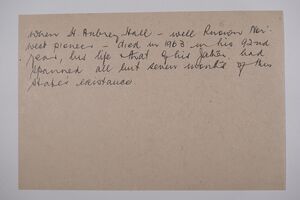 When H. Aubrey Hall - well known Nor'
west pioneer - died in 1963 in his 92nd
year, his life & that of his father had
spanned all but seven months of this
state's existence